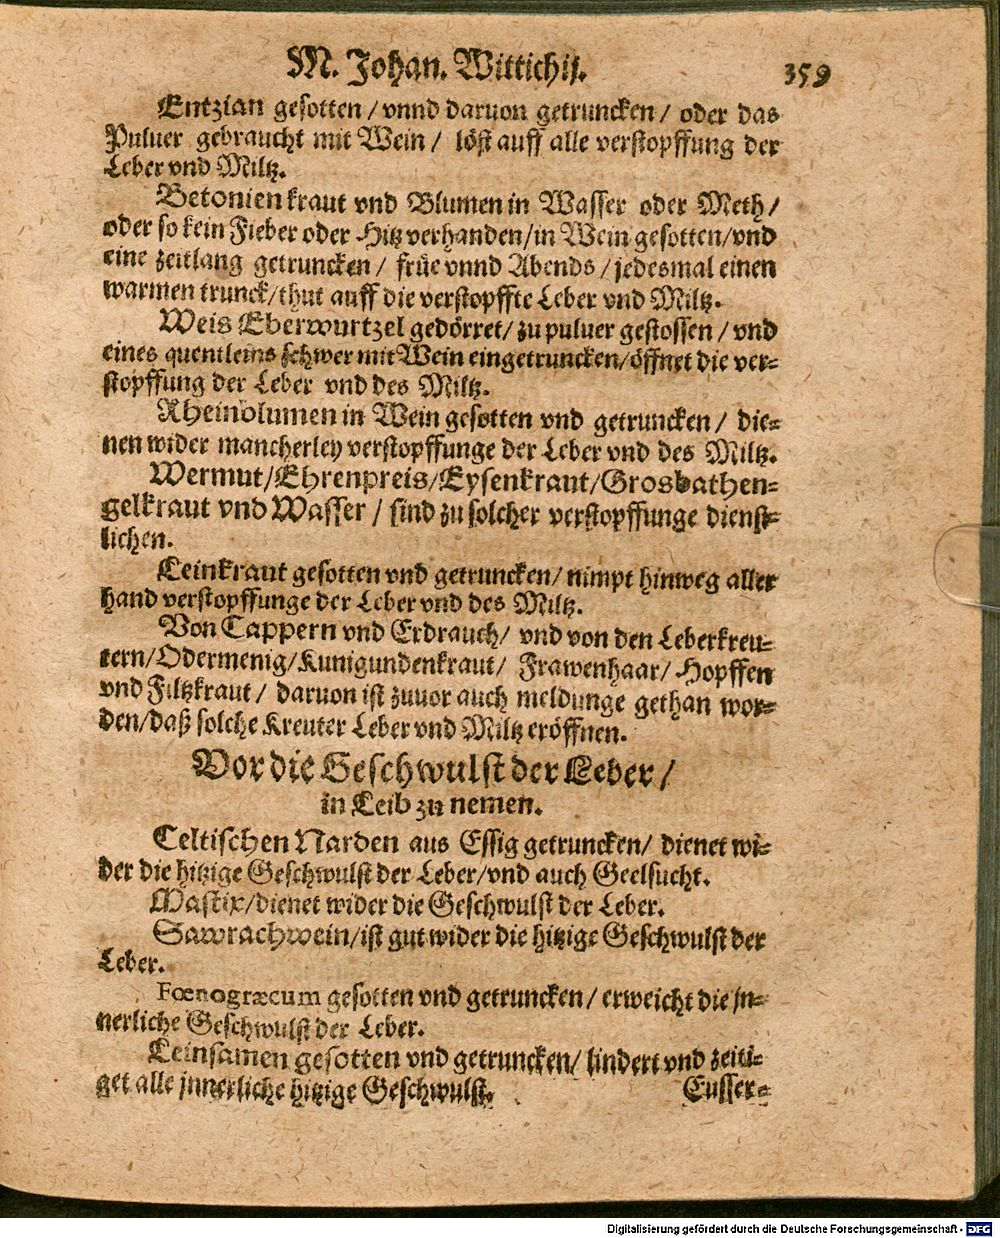 M. Johan. Wittichij. 359
Entzian gesotten / vnnd daruon getruncken / oder das
Puluer gebraucht mit Wein / löst auff alle verstopffung der
Leber vnd Miltz.
Betonien kraut vnd Blumen in Wasser oder Meth /
oder so kein Fieber oder Hitz verhanden / in Wein gesotten / vnd
eine zeitlang getruncken / früe vnnd Abends / jedesmal einen
warmen trunck / thut auff die verstopffte Leber vnd Miltz.
Weis Eberwurtzel gedörret / zu puluer gestossen / vnd
eines quentleins schwer mit Wein eingetruncken / öffnet die ver=
stopffung der Leber vnd des Miltz.
Rheinblumen in Wein gesotten vnd getruncken / die=
nen wider mancherley verstopffunge der Leber vnd des Miltz.
Wermut / Ehrenpreis / Eysenkraut / Grosbathen=
gelkraut vnd Wasser / sind zu solcher verstopffunge dienst=
lichen.
Leinkraut gesotten vnd getruncken / nimpt hinweg aller
hand verstopffunge der Leber vnd des Miltz.
Von Cappern vnd Erdrauch / vnd von den Leberkreu=
tern / Odermenig / Kunigundenkraut / Frawenhaar / Hopffen
vnd Filtzkraut / daruon ist zuuor auch meldunge gethan wor=
den / daß solche Kreuter Leber vnd Miltz eröffnen.
Vor die Geschwulst der Leber /
in Leib zu nemen.
Celtischen Narden aus Essig getruncken / dienet wi=
der die hitzige Geschwulst der Leber / vnd auch Geelsucht.
Mastix / dienet wider die Geschwulst der Leber.
Sawrachwein / ist gut wider die hitzige Geschwulst der
Leber.
Fœnogræcum gesotten vnd getruncken / erweicht die jn=
nerliche Geschwulst der Leber.
Leinsamen gesotten vnd getruncken / lindert vnd zeiti=
get alle jnnerliche hitzige Geschwulst.
Eusser=
Digitalisierung gefördert durch die Deutsche Forschungsgemeinschaft - DFG